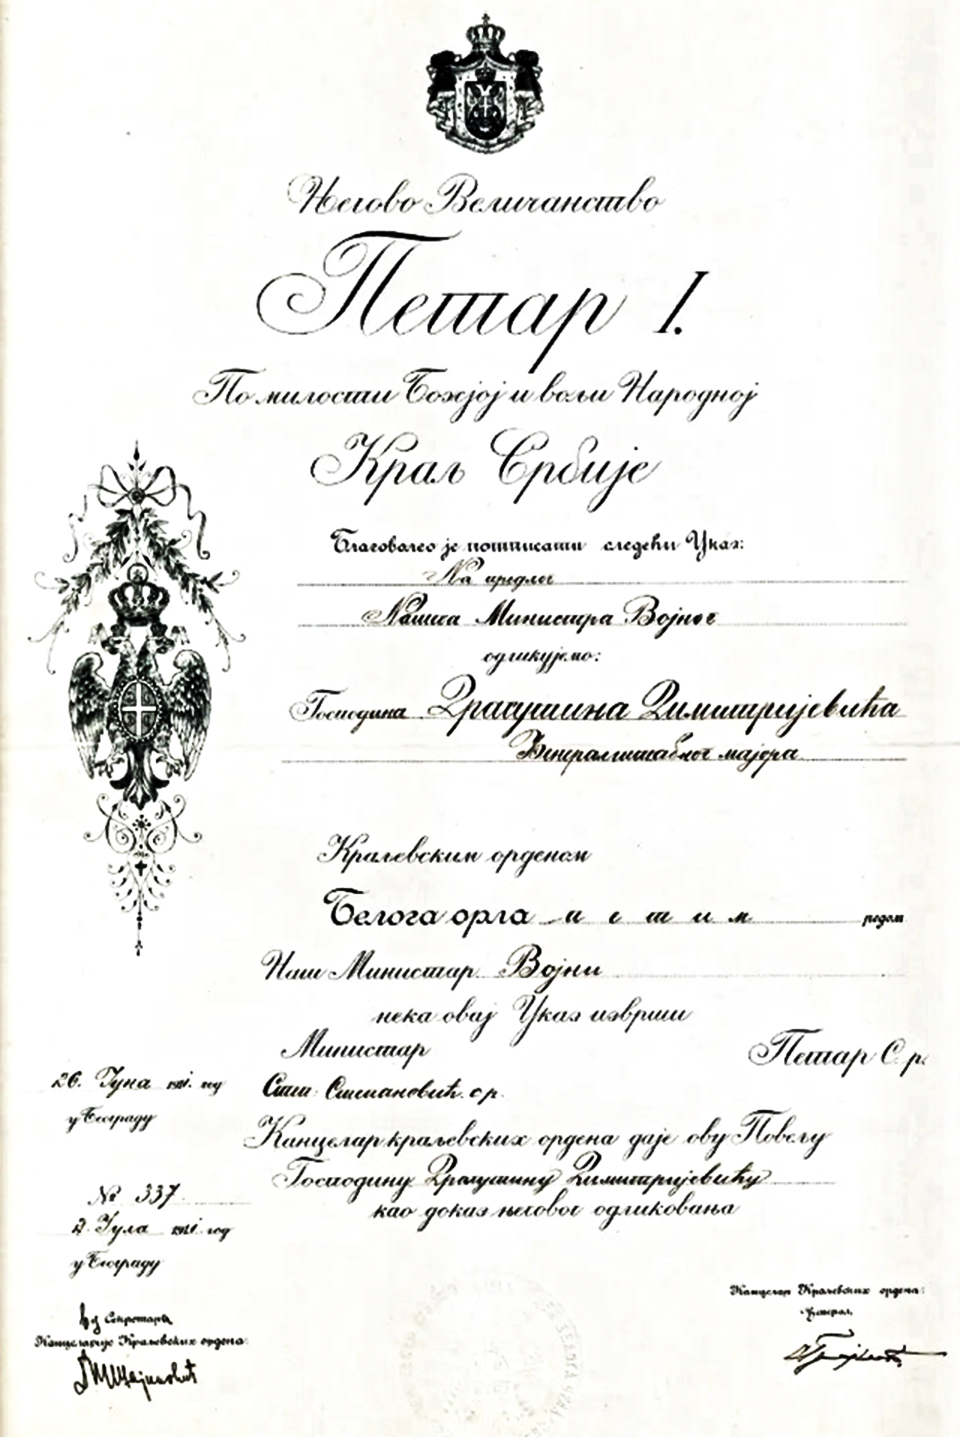 Његово Величанство
Петар I.
По милости Божјој и вољи Народној
Краљ Србије
Благоволео је потписати следећи Указ:
На предлог
Нашега Министра Војног
одликујемо:
Господина Драгутина Димитријевића
Ђенералштабног мајора
Краљевским орденом
Белога орла петим редом
Наш Министар Војни
нека овај Указ изврши
Министар
Петар С. р.
26. Јуна год
у Београду
Степановић с. р.
Канцелар краљевских ордена даје ову Повељу
Господину Драгутину Димитријевићу
као доказ његовог одликовања
№ 337
Јула год
у Београду
Канцелар Краљевских ордена:
Ђенерал,
Секретара
Канцеларије Краљевских ордена: